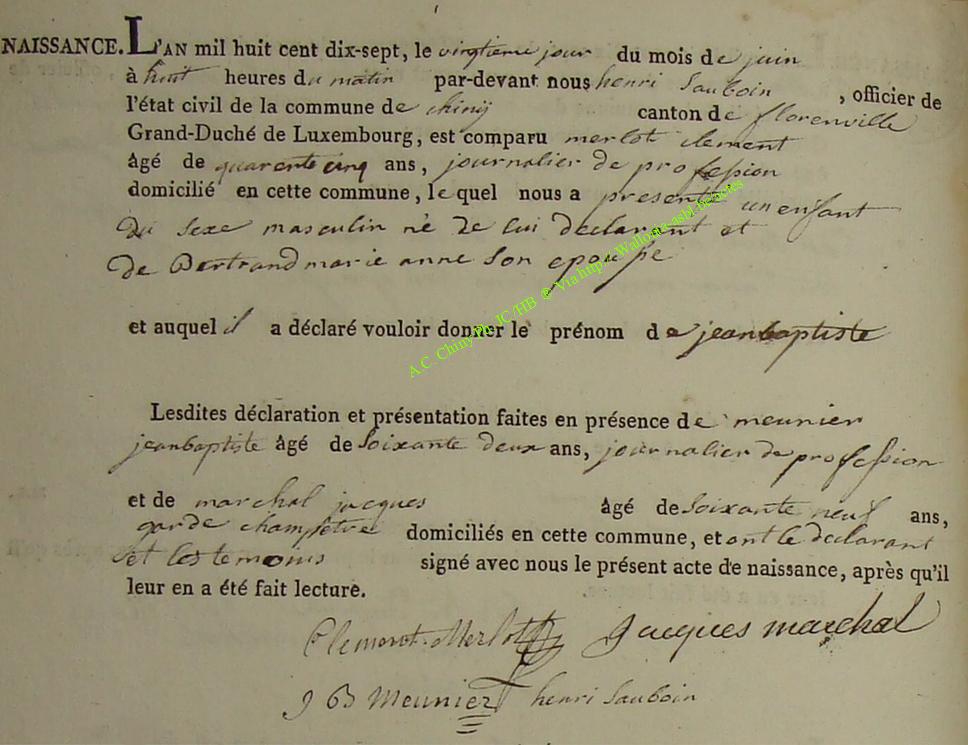 NAISSANCE. L'AN mil huit cent dix-sept, le vingtieme jour du mois de juin
à huit heures du matin par-devant nous henri Sauboin, officier de
l'état civil de la commune de chiny canton de florenville
Grand-Duché de Luxembourg, est comparu merlot clement
âgé de quarente cinq ans, journalier de profession
domicilié en cette commune, le quel nous a presenté un enfant
du sexe masculin né de lui declarant et
de Bertrand marie anne son epouse
et auquel il a déclaré vouloir donner le prénom de jeanbaptiste
Lesdites déclaration et présentation faites en présence de meunier
jeanbaptiste âgé de soixante deux ans, journalier de profession
et de marchal jacques âgé de soixante neuf ans,
garde champetre domiciliés en cette commune, et ont le declarant
et les temoins signé avec nous le présent acte de naissance, après qu'il
leur en a été fait lecture.
Clement Merlot jacques marchal
J B Meunier henri Sauboin
A.C. Chiny Ph. JC/HB @ Via https:Wallonia-asbl-benetes